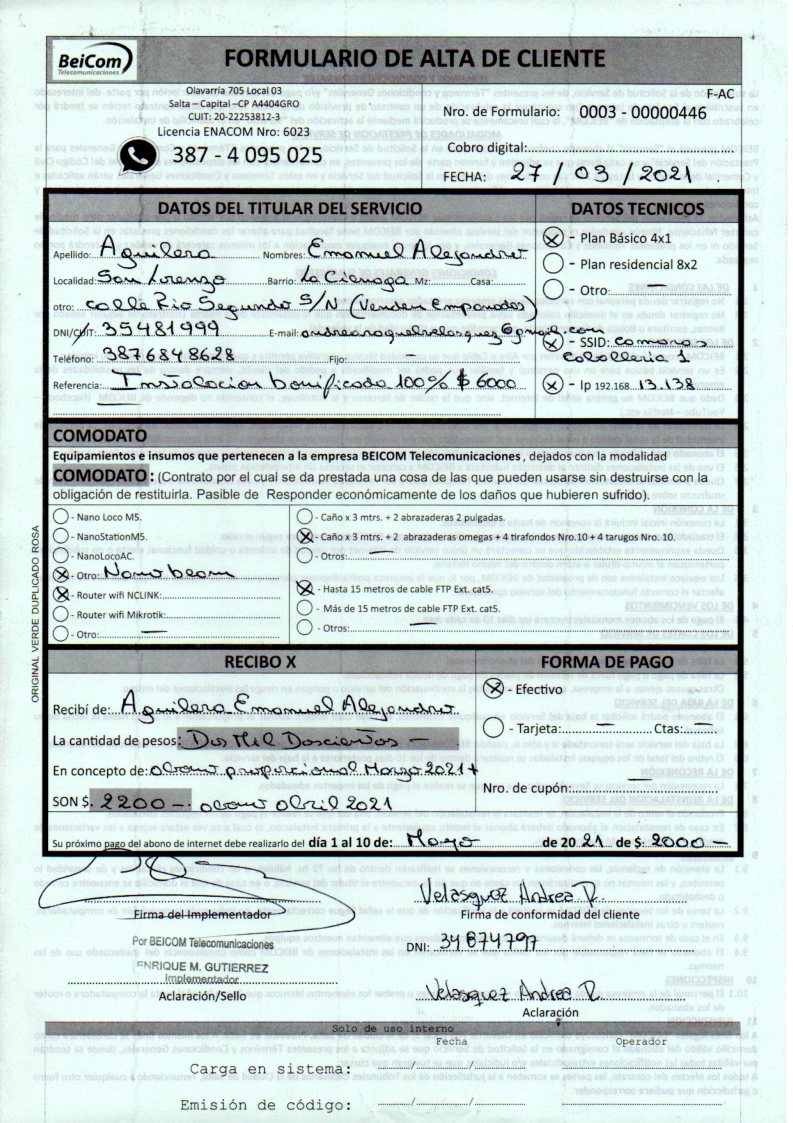 BeiCom
Telecomunicaciones
FORMULARIO DE ALTA DE CLIENTE
Olavarría 705 Local 03
Salta – Capital –CP A4404GRO
CUIT: 20-22253812-3
Licencia ENACOM Nro: 6023
387 - 4 095 025
F-AC
Nro. de Formulario: 0003 - 00000446
Cobro digital:
FECHA: 27 / 03 / 2021
DATOS DEL TITULAR DEL SERVICIO
Apellido: Aguilera Nombres: Emanuel Alejandro
Localidad: San Lorenzo Barrio: La Cienaga Mz: Casa:
otro: calle Rio Segundo S/N (Venden Empanadas)
DNI/CUIT: 35481999 E-mail: andrearaquelvelasquez@gmail.com
Teléfono: 3876848628 Fijo: –
Referencia: Instalacion bonificada 100% $ 6000
DATOS TECNICOS
- Plan Básico 4x1
- Plan residencial 8x2
- Otro: —
- SSID: camaras
caballeria 1
- Ip 192.168. 13.138
COMODATO
Equipamientos e insumos que pertenecen a la empresa BEICOM Telecomunicaciones, dejados con la modalidad
COMODATO: (Contrato por el cual se da prestada una cosa de las que pueden usarse sin destruirse con la
obligación de restituirla. Pasible de Responder económicamente de los daños que hubieren sufrido).
- Nano Loco M5.
- NanoStationM5.
- NanoLocoAC.
- Otro: Nano beam
- Router wifi NCLINK:
- Router wifi Mikrotik:
- Otro: —
- Caño x 3 mtrs. + 2 abrazaderas 2 pulgadas.
- Caño x 3 mtrs. + 2 abrazaderas omegas + 4 tirafondos Nro.10 + 4 tarugos Nro. 10.
- Otros: —
- Hasta 15 metros de cable FTP Ext. cat5.
- Más de 15 metros de cable FTP Ext. cat5.
- Otros: —
ORIGINAL VERDE DUPLICADO ROSA
RECIBO X
Recibí de: Aguilera Emanuel Alejandro
La cantidad de pesos: Dos Mil Doscientos —
En concepto de: abono proporcional Marzo 2021 +
SON $. 2200 –. abono abril 2021
FORMA DE PAGO
- Efectivo
- Tarjeta: — Ctas: —
Nro. de cupón: —
Su próximo pago del abono de internet debe realizarlo del día 1 al 10 de: Mayo de 20 21 de $: 2000 –
Firma del Implementador
Por BEICOM Telecomunicaciones
ENRIQUE M. GUTIERREZ
Implementador
Aclaración/Sello
Velasquez Andrea R.
Firma de conformidad del cliente
DNI: 34874797
Velasquez Andrea R.
Aclaración
Solo de uso interno
Fecha Operador
Carga en sistema: / /
Emisión de código: / /